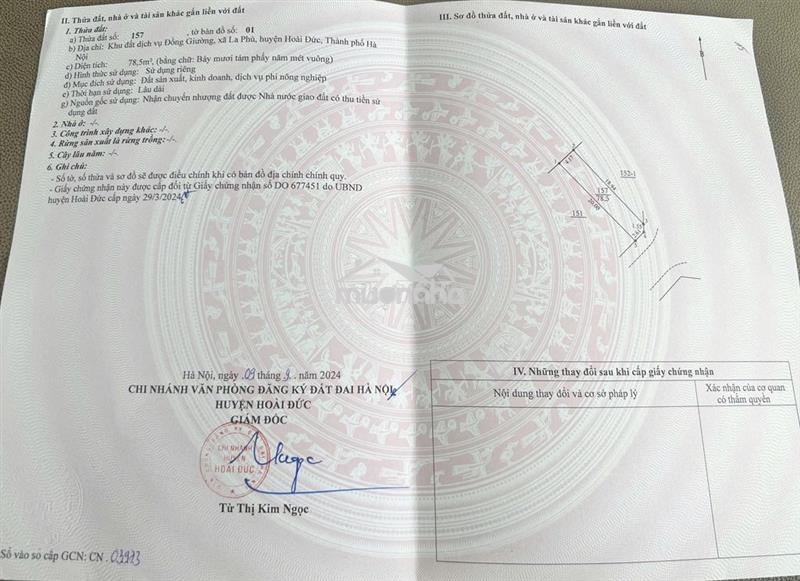 II. Thửa đất, nhà ở và tài sản khác gắn liền với đất
1. Thửa đất:
a) Thửa đất số: 157 , tờ bản đồ số: 01
b) Địa chỉ: Khu đất dịch vụ Đồng Giường, xã La Phù, huyện Hoài Đức, Thành phố Hà
Nội
c) Diện tích: 78,5m², (bằng chữ: Bảy mươi tám phẩy năm mét vuông)
d) Hình thức sử dụng: Sử dụng riêng
đ) Mục đích sử dụng: Đất sản xuất, kinh doanh, dịch vụ phi nông nghiệp
e) Thời hạn sử dụng: Lâu dài
g) Nguồn gốc sử dụng: Nhận chuyển nhượng đất được Nhà nước giao đất có thu tiền sử
dụng đất
2. Nhà ở: -/-
3. Công trình xây dựng khác: -/-
4. Rừng sản xuất là rừng trồng: -/-
5. Cây lâu năm: -/-
6. Ghi chú:
- Số tờ, số thửa và sơ đồ sẽ được điều chỉnh khi có bản đồ địa chính chính quy.
- Giấy chứng nhận này được cấp đổi từ Giấy chứng nhận số DO 677451 do UBND
huyện Hoài Đức cấp ngày 29/3/2024
Hà Nội, ngày 09 tháng 9 năm 2024
CHI NHÁNH VĂN PHÒNG ĐĂNG KÝ ĐẤT ĐAI HÀ NỘI
HUYỆN HOÀI ĐỨC
GIÁM ĐỐC
CHI NHÁNH
HUYỆN
HOÀI ĐỨC
Từ Thị Kim Ngọc
Số vào sổ cấp GCN: CN .03973
III. Sơ đồ thửa đất, nhà ở và tài sản khác gắn liền với đất
B
152-1
18.94
157
78.5
20.00
151
muonnha
IV. Những thay đổi sau khi cấp giấy chứng nhận
Nội dung thay đổi và cơ sở pháp lý
Xác nhận của cơ quan
có thẩm quyền